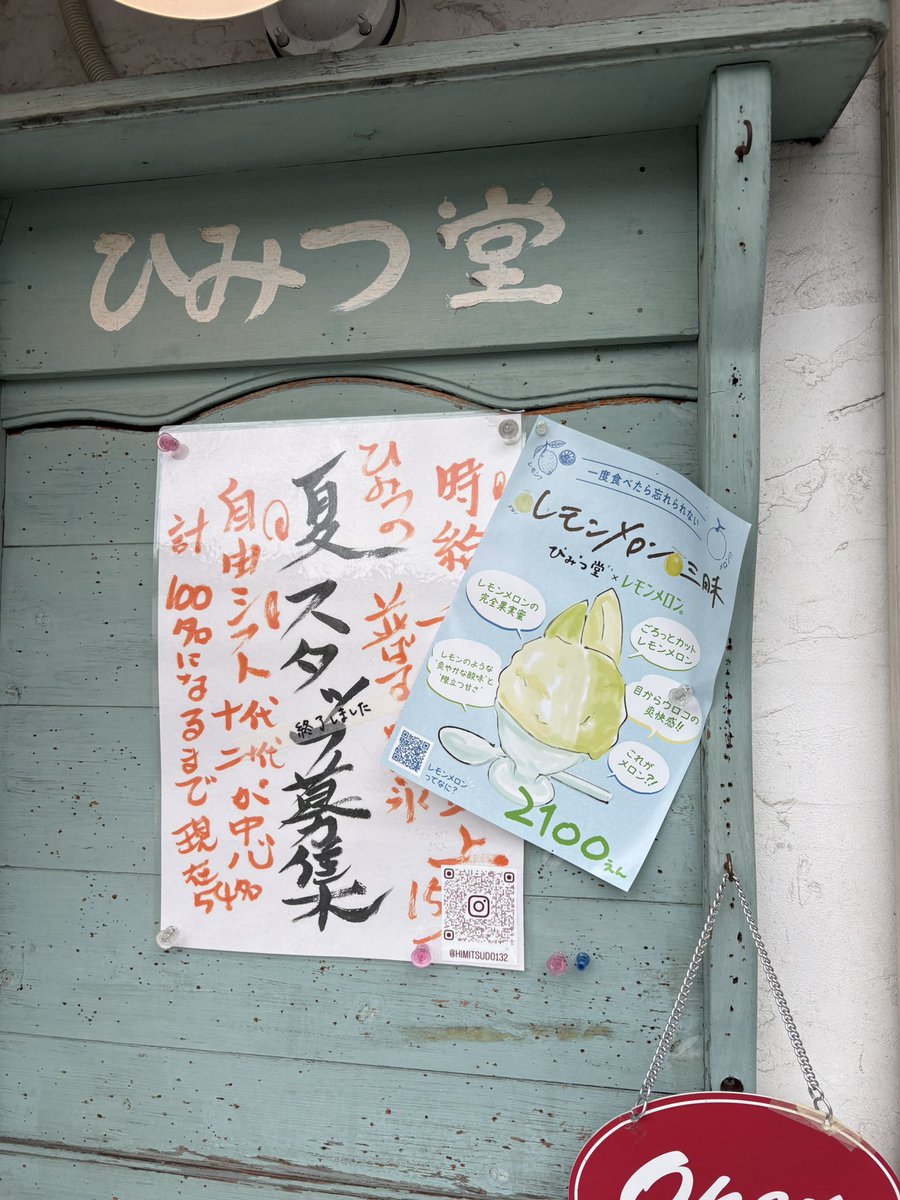 ひみつ堂
時給
ひみつの
夏スタッフ募集
終了しました
自由シフト 十代二十代が中心
計100名になるまで 現在54名
@HIMITSUDO132
一度食べたら忘れられない
レモン?
メロン?
レモンメロン三昧
ひみつ堂×レモンメロン
レモンメロンの
完全果実蜜
ごろっとカット
レモンメロン
レモンのような
"爽やかな酸味"と
"際立つ甘さ"
目からウロコの
爽快感!!
これが
メロン?!
レモンメロン
ってなに?
2100えん